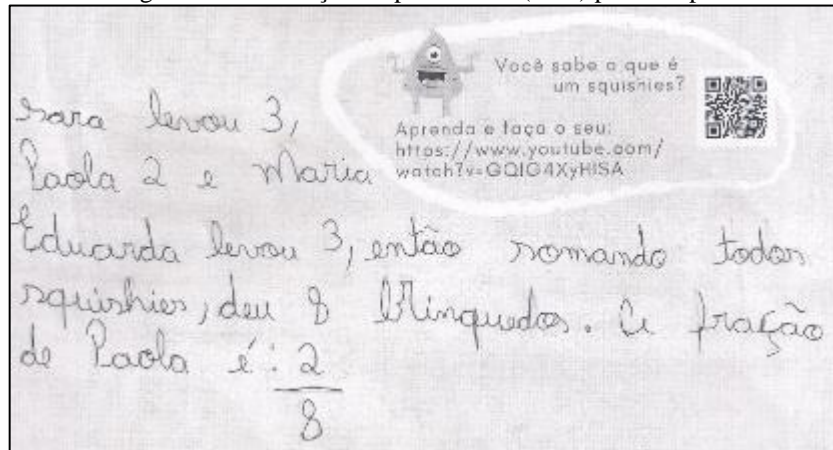 Você sabe o que é
um squishies?
Aprenda e faça o seu:
https://www.youtube.com/
watch?v=GQIG4XyHISA
Sara levou 3,
Paola 2 e Maria
Eduarda levou 3, então somando todos
squishies, deu 8 brinquedos. A fração
de Paola é: 2
8